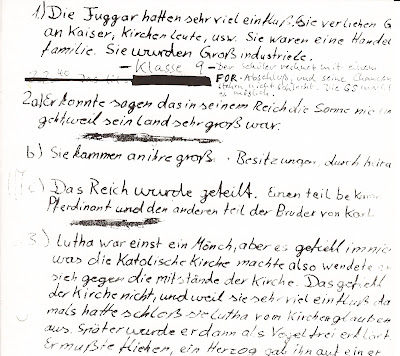 1.) Die Juggar hatten sehr viel einfluß. Sie verliehen G
an Kaiser, Kirchenleute, usw. Sie waren eine Handel
familie. Sie wurden Großindustriele.
- Klasse 9 -
Der Schüler rechnet mit einem
FOR-Abschluß, und seine Chancen
stehen nicht schlecht. Die GS
möglich.
2a) Er konnte sagen das in seinem Reich die Sonne nie un
geht weil sein land sehr groß war.
b) Sie kammen an ihre groß Besitzungen durch heira
c) Das Reich wurde geteilt. Einen teil bekam
Pferdinant und den anderen teil der Bruder von Karl
3) Lutha war einst ein Mönch, aber es gefiell im nich
was die Katolische Kirche machte also wendete er
sich gegen die mitstände der Kirche. Das gefiehl
der Kirche nicht, und weil sie sehr viel einfluß da
mals hatte schloß sie Lutha vom Kirchenglauben
aus. Später wurde er dann als Vogelfrei erklärt
Er mußte fliehen, ein Herzog gab ihn auf einer